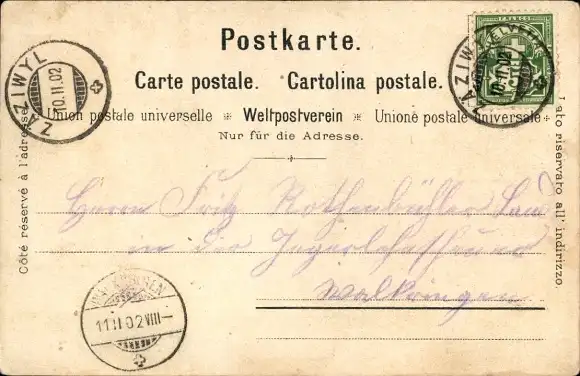 Postkarte.
Carte postale. Cartolina postale.
Union postale universelle ✻ Weltpostverein ✻ Unione postale universale
Nur für die Adresse.
Côté réservé à l'adresse.
Lato riservato all' indirizzo.
ZÄZIWYL
10.II.02
FRANCO
HELVETIA
ZÄZIWYL
10.II.02
Herrn Fritz Rothenbühler
in der
Walkringen
WALKRINGEN
11.II.02 VIII—